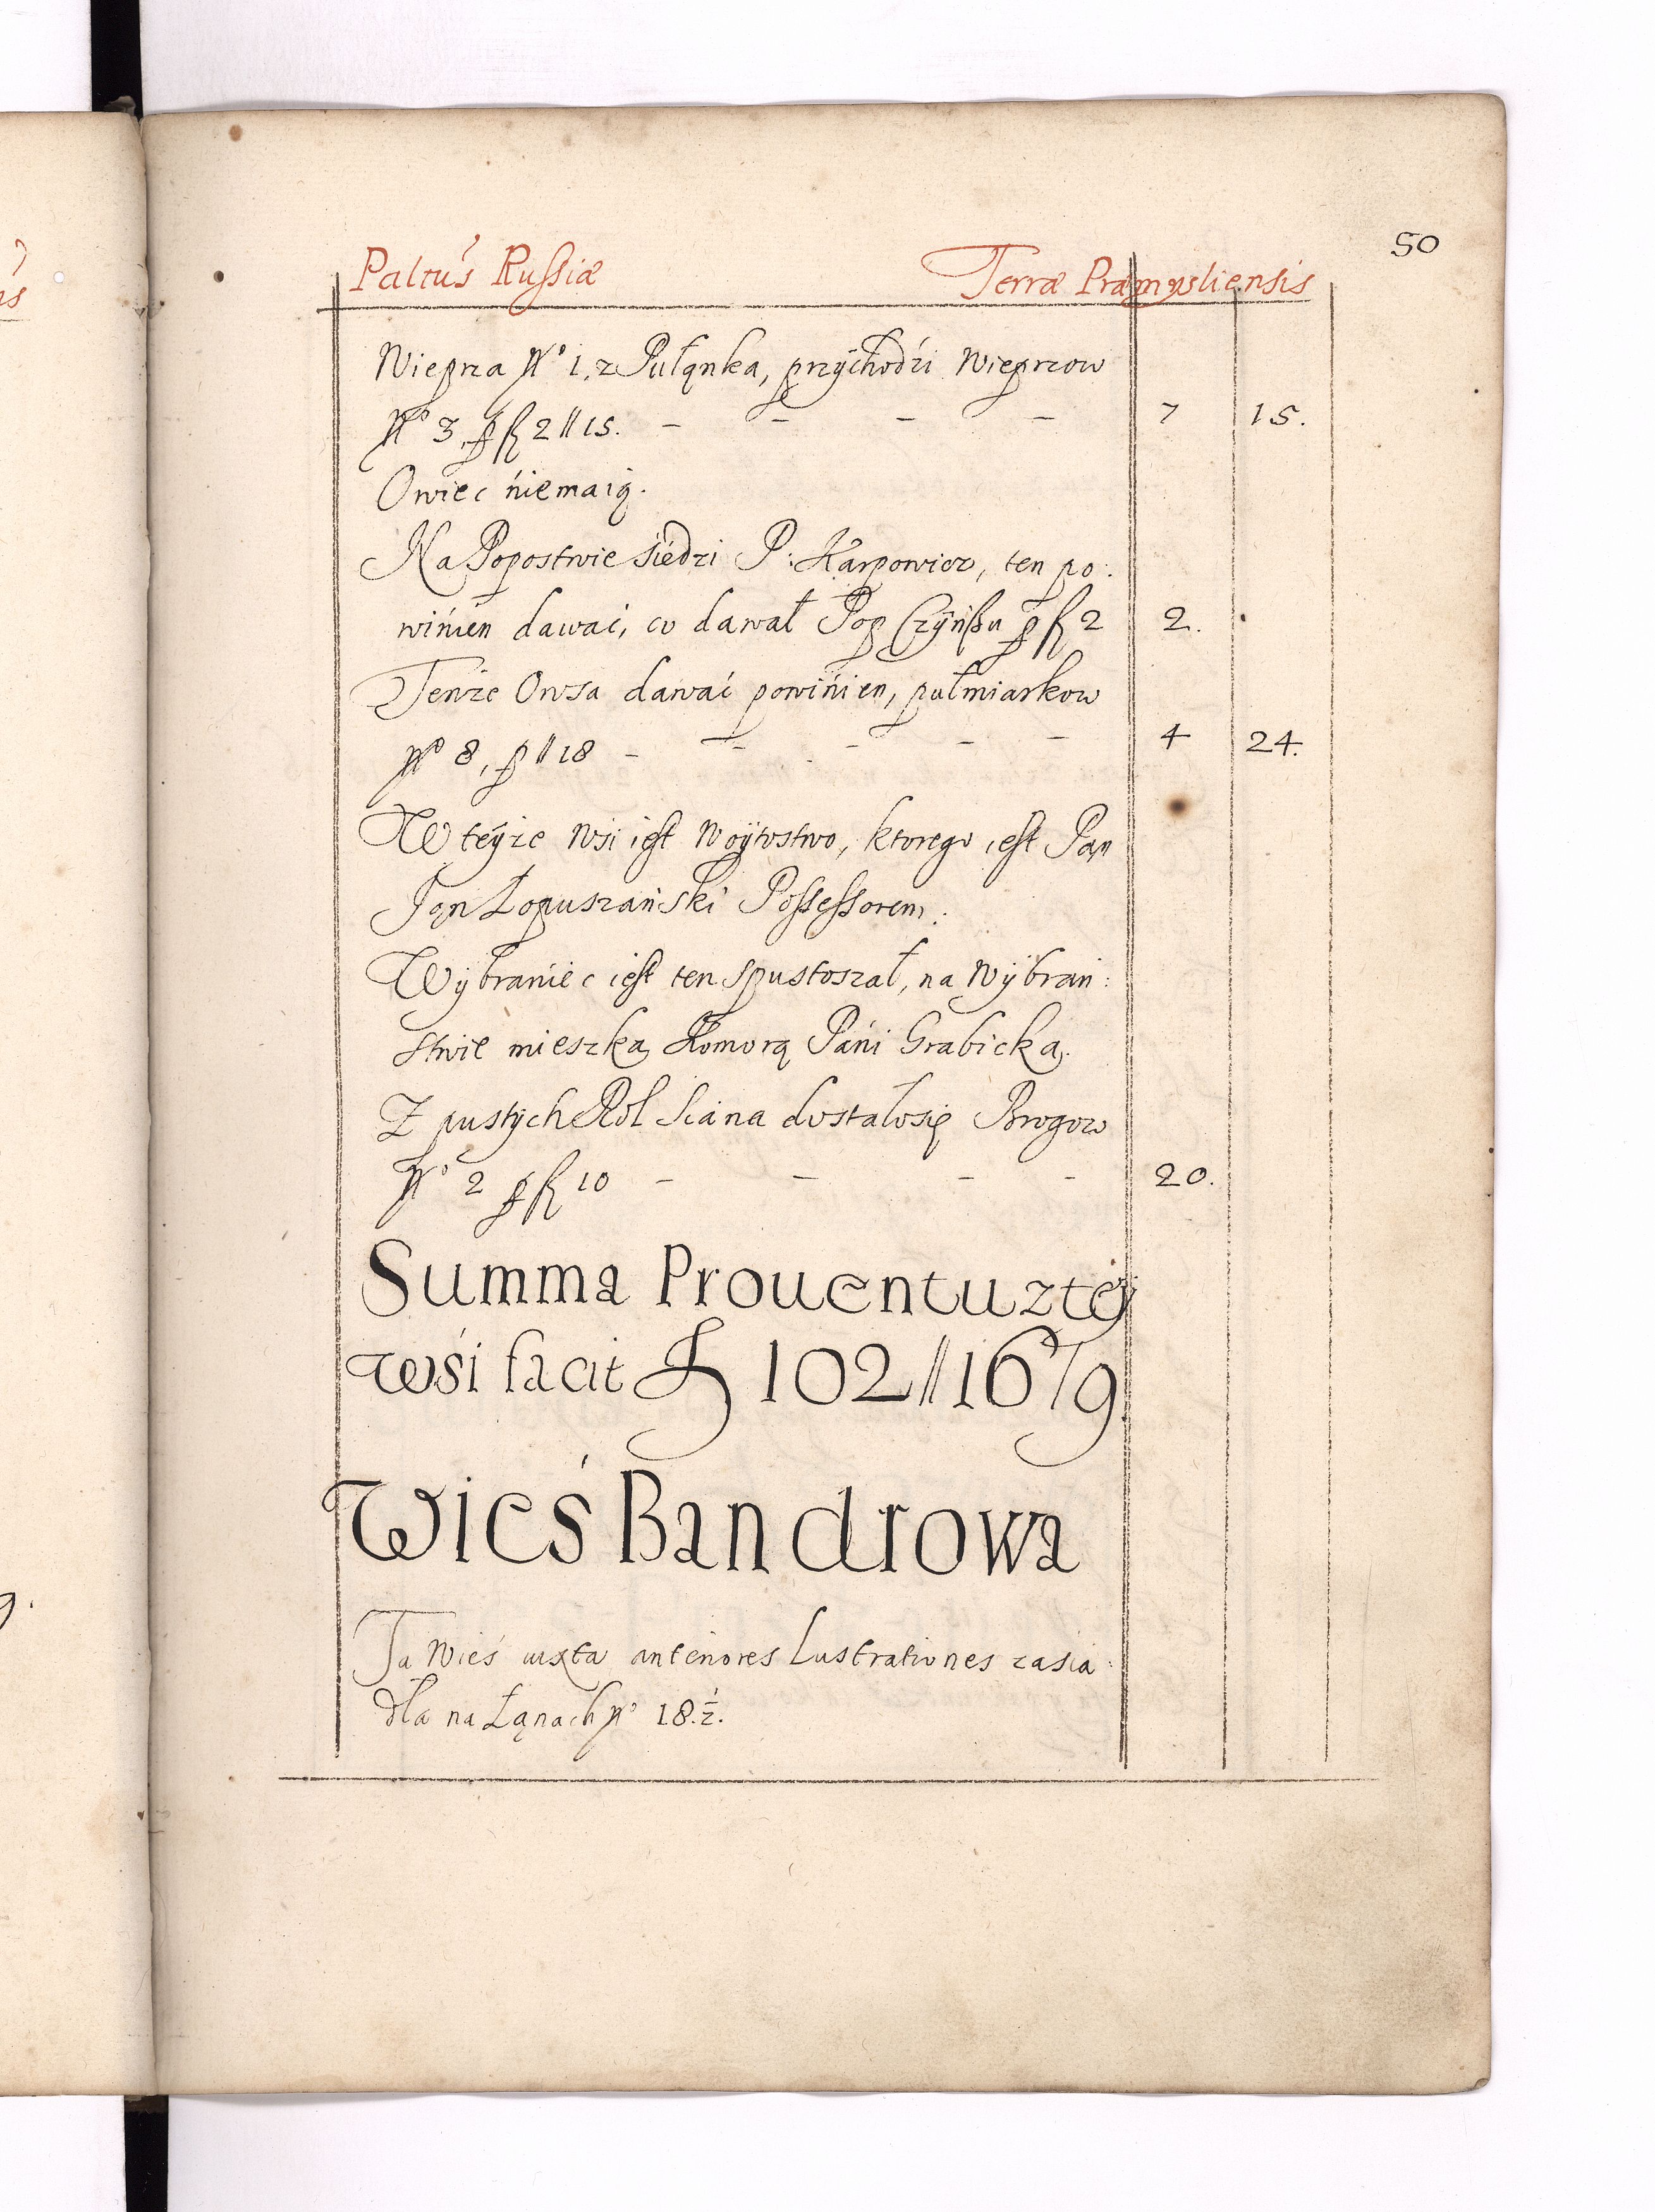 50
Paltus Russiæ Terræ Præmysliensis
Wieprza No 1. z Pułąnka, przychodźi Wieprzow
No 3, p fl 2 // 15. – – – – 7 15.
Owiec niemaią.
Na Popostwie siedzi P: Karpowicz, ten po:
winien dawać, co dawał Pop Czynßu p fl 2 2.
Tenże Owsa dawać powinien, pułmiarkow
No 8, p // 18 – – – – – 4 24.
W teyże Wsi iest Woytostwo, ktorego iest Pan
Jan Łopuszański Possessorem.
Wybraniec iest ten spustoszał, na Wybrań:
stwie mieszka Komorą Pani Grabicka.
Z pustych Rol Siana dostałosię Brogow
No 2 p fl 10 – – – – 20.
Summa Prouentu z tey
wśi facit fl 102 // 16 7/9.
Wieś Bandrowa
Ta Wieś iuxta anteriores Lustrationes zasia:
dła na Łąnach No 18.½.